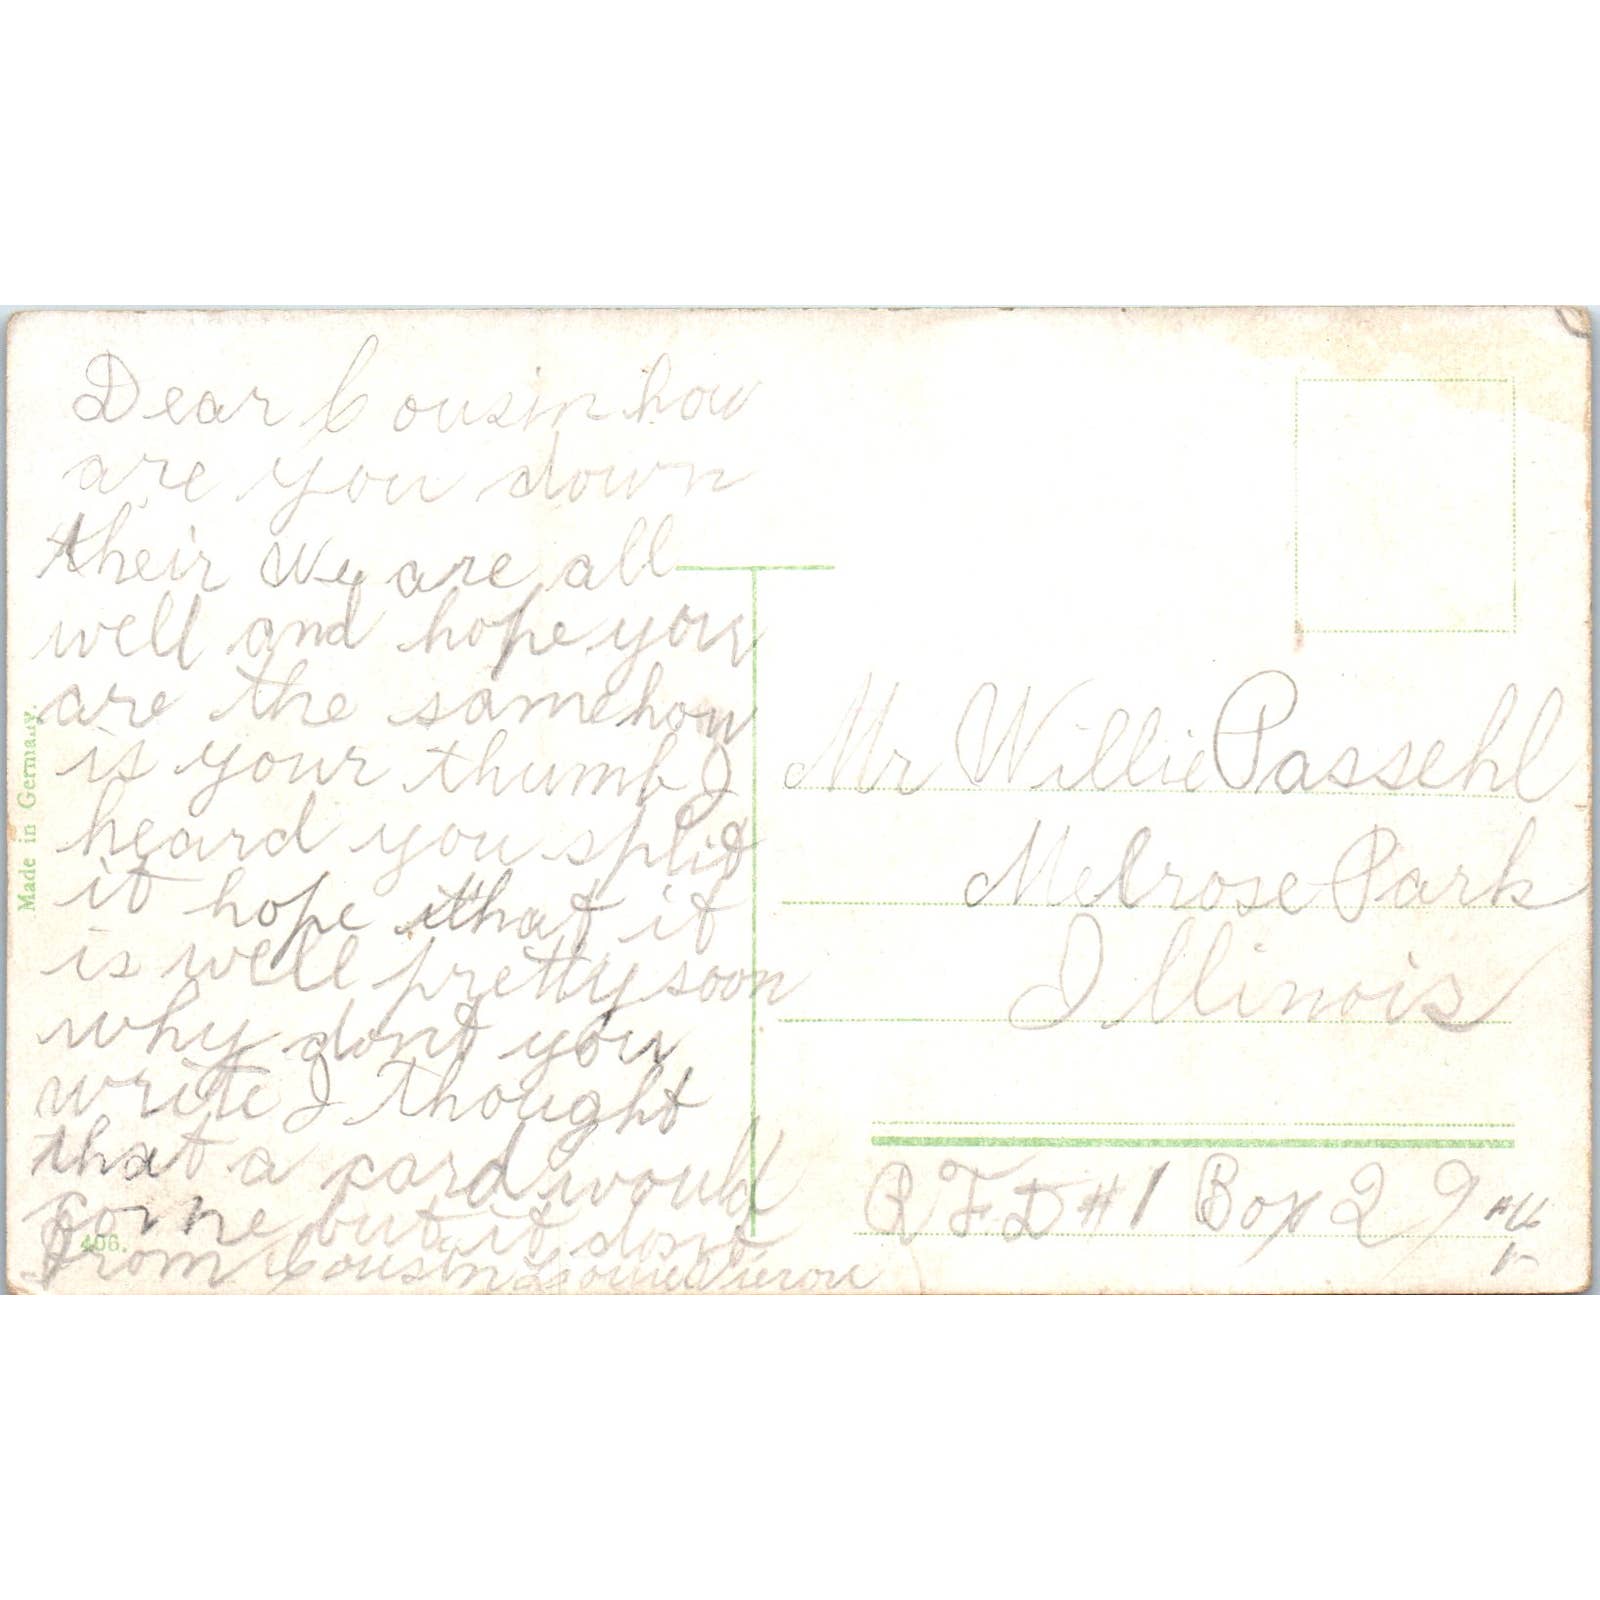 Dear Cousin how
are you down
their We are all
well and hope you
are the same how
is your thumb I
heard you split
it hope that it
is well pretty soon
why dont you
write I thought
that a card would
come but it dont
From Cousin
Made in Germany.
406.
Mr Willie Passehl
Melrose Park
Illinois
RFD #1 Box 29